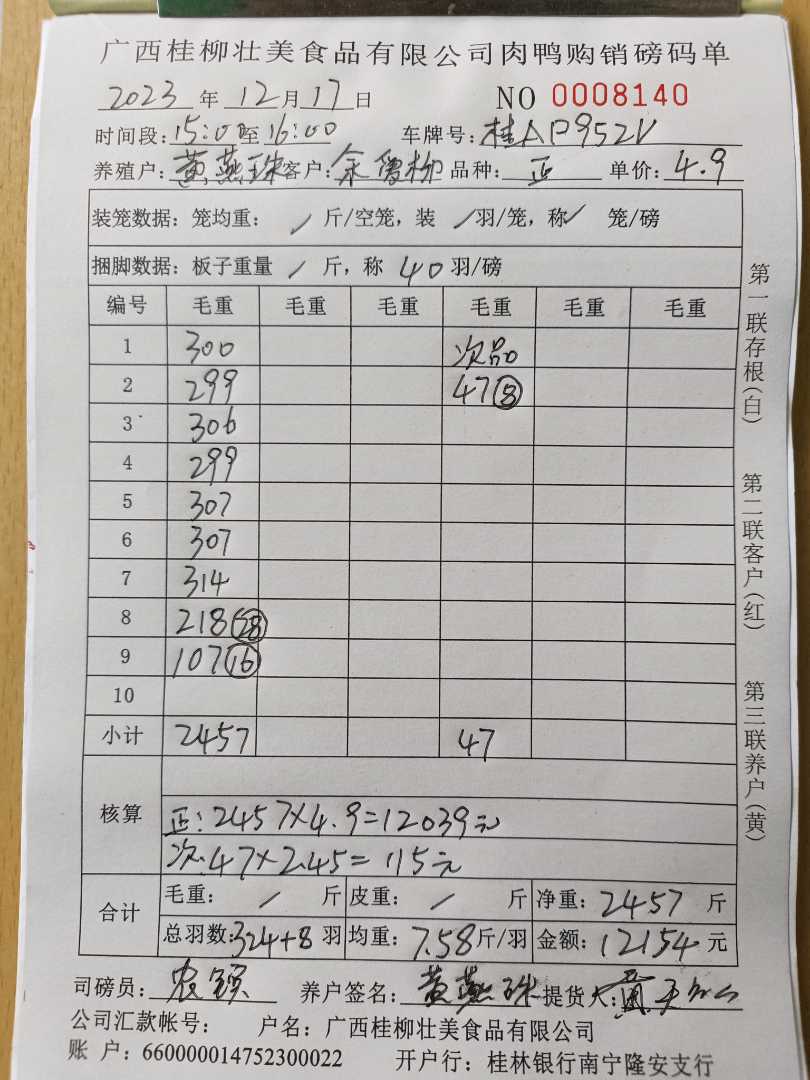 广西桂柳壮美食品有限公司肉鸭购销磅码单
2023 年 12 月 17 日 NO 0008140
时间段: 15:00 至 16:00 车牌号: 桂AP952V
养殖户: 黄燕珠 客户: 余 柳 品种: 正 单价: 4.9
装笼数据: 笼均重: / 斤/空笼, 装 / 羽/笼, 称 / 笼/磅
捆脚数据: 板子重量 / 斤, 称 40 羽/磅
编号 毛重 毛重 毛重 毛重 毛重 毛重
1 300 次品
2 299 47(8)
3 306
4 299
5 307
6 307
7 314
8 218(28)
9 107(16)
10
小计 2457 47
核算
正: 2457×4.9=12039元
次: 47×2.45=115元
合计 毛重: / 斤 皮重: / 斤 净重: 2457 斤
总羽数: 324+8 羽 均重: 7.58 斤/羽 金额: 12154 元
司磅员: 农 养户签名: 黄燕珠 提货人: 黄
公司汇款帐号: 户名: 广西桂柳壮美食品有限公司
账 户: 660000014752300022 开户行: 桂林银行南宁隆安支行
第一联存根(白)
第二联客户(红)
第三联养户(黄)